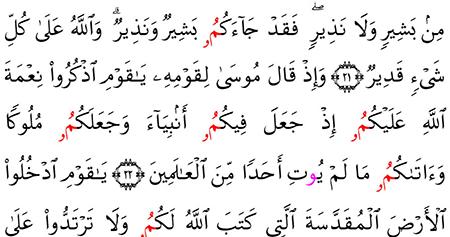 مِنۢ بَشِيرٖ وَلَا نَذِيرٖۖ فَقَدْ جَآءَكُمُۥ بَشِيرٞ وَنَذِيرٞۗ وَاللَّهُ عَلَىٰ كُلِّ
شَيْءٖ قَدِيرٞ ﴿٢١﴾ وَإِذْ قَالَ مُوسَىٰ لِقَوْمِهِۦ يَٰقَوْمِ اِذْكُرُواْ نِعْمَةَ
اَللَّهِ عَلَيْكُمُۥ إِذْ جَعَلَ فِيكُمُۥ أَنۢبِيَآءَ وَجَعَلَكُمُۥ مُلُوكٗا
وَءَاتَىٰكُمُۥ مَا لَمْ يُوتِ أَحَدٗا مِّنَ اَلْعَٰلَمِينَ ﴿٢٢﴾ يَٰقَوْمِ اِدْخُلُواْ
اَلْأَرْضَ اَلْمُقَدَّسَةَ اَلَّتِي كَتَبَ اَللَّهُ لَكُمُۥ وَلَا تَرْتَدُّواْ عَلَىٰ